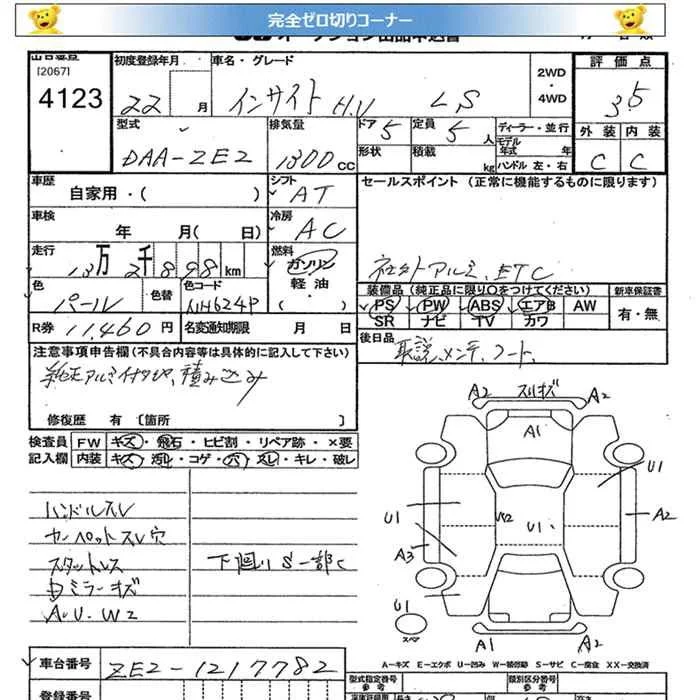 完全ゼロ切りコーナー
[2067]
4123
初度登録年月
22 月
車名・グレード
インサイト H.V LS
2WD
・
4WD
評価点
3.5
外装 内装
C C
型式
DAA-ZE2
排気量
1300 CC
ドア 5
定員 5 人
形状
積載 kg
ディーラー・並行
モデル年式 年
ハンドル 左・右
車歴
自家用・( )
シフト
AT
セールスポイント (正常に機能するものに限ります)
車検
年 月( 日)
冷房
AC
走行
13万2千898 km
燃料
ガソリン
軽油
・( )
社外アルミ、ETC
色
パール
色替
色コード
NH624P
装備品 (純正品に限り○をつけてください)
PS PW ABS エアB AW
SR ナビ TV カワ
新車保証書
有・無
R券 11,460 円
名変通知期限 月 日
後日品
取説、メンテ、コート、
注意事項申告欄 (不具合内容等は具体的に記入して下さい)
純正アルミ 積み込み
修復歴 有 〔箇所 〕
検査員 FW キズ・飛石・ヒビ割・リペア跡・×要
記入欄 内装 キズ・汚れ・コゲ・穴・スレ・キレ・破レ
ハンドルスレ
カーペットスレ穴
スタットレス
下廻りS一部C
ミラーキズ
A.U.W2
A2 スリキズ A2
A1
U1
U1
A2
W2
U1
A3
U1
スペア
A1 A2
A-キズ E-エクボ U-凹み W-補修跡 S-サビ C-腐食 XX-交換済
車台番号
ZE2-1217782
登録番号
型式指定番号
参考
類別区分番号
参考